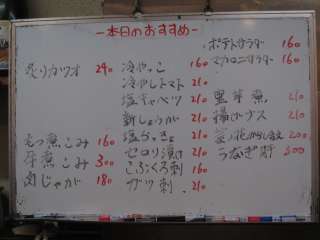 -本日のおすすめ-
炙りカツオ 290
もつ煮こみ 160
牛煮こみ 300
肉じゃが 180
冷やっこ 160
冷やしトマト 210
塩キャベツ 210
新しょうが 210
塩らっきょ 210
セロリ漬け 210
こぶくろ刺 160
ガツ刺 210
ポテトサラダ 160
マカロニサラダ 160
里芋煮 210
揚げナス 210
200
うなぎ肝 200